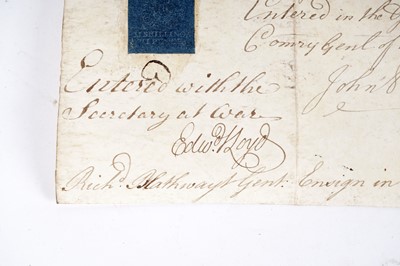 Entered in the
Comry Gent of
John
Entered with the
Secretary at War.
Edwd Lloyd
Richd Blathwayt Gent: Ensign in